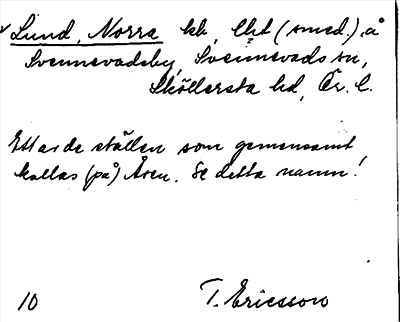 Lund, Norra hb, lht (smed.) å
Svennevadsby, Svennevads sn,
Sköllersta hd, Ör. l.
Ett av de ställen som gemensamt
kallas (på) Åsen. Se detta namn!
10 T. Ericsson